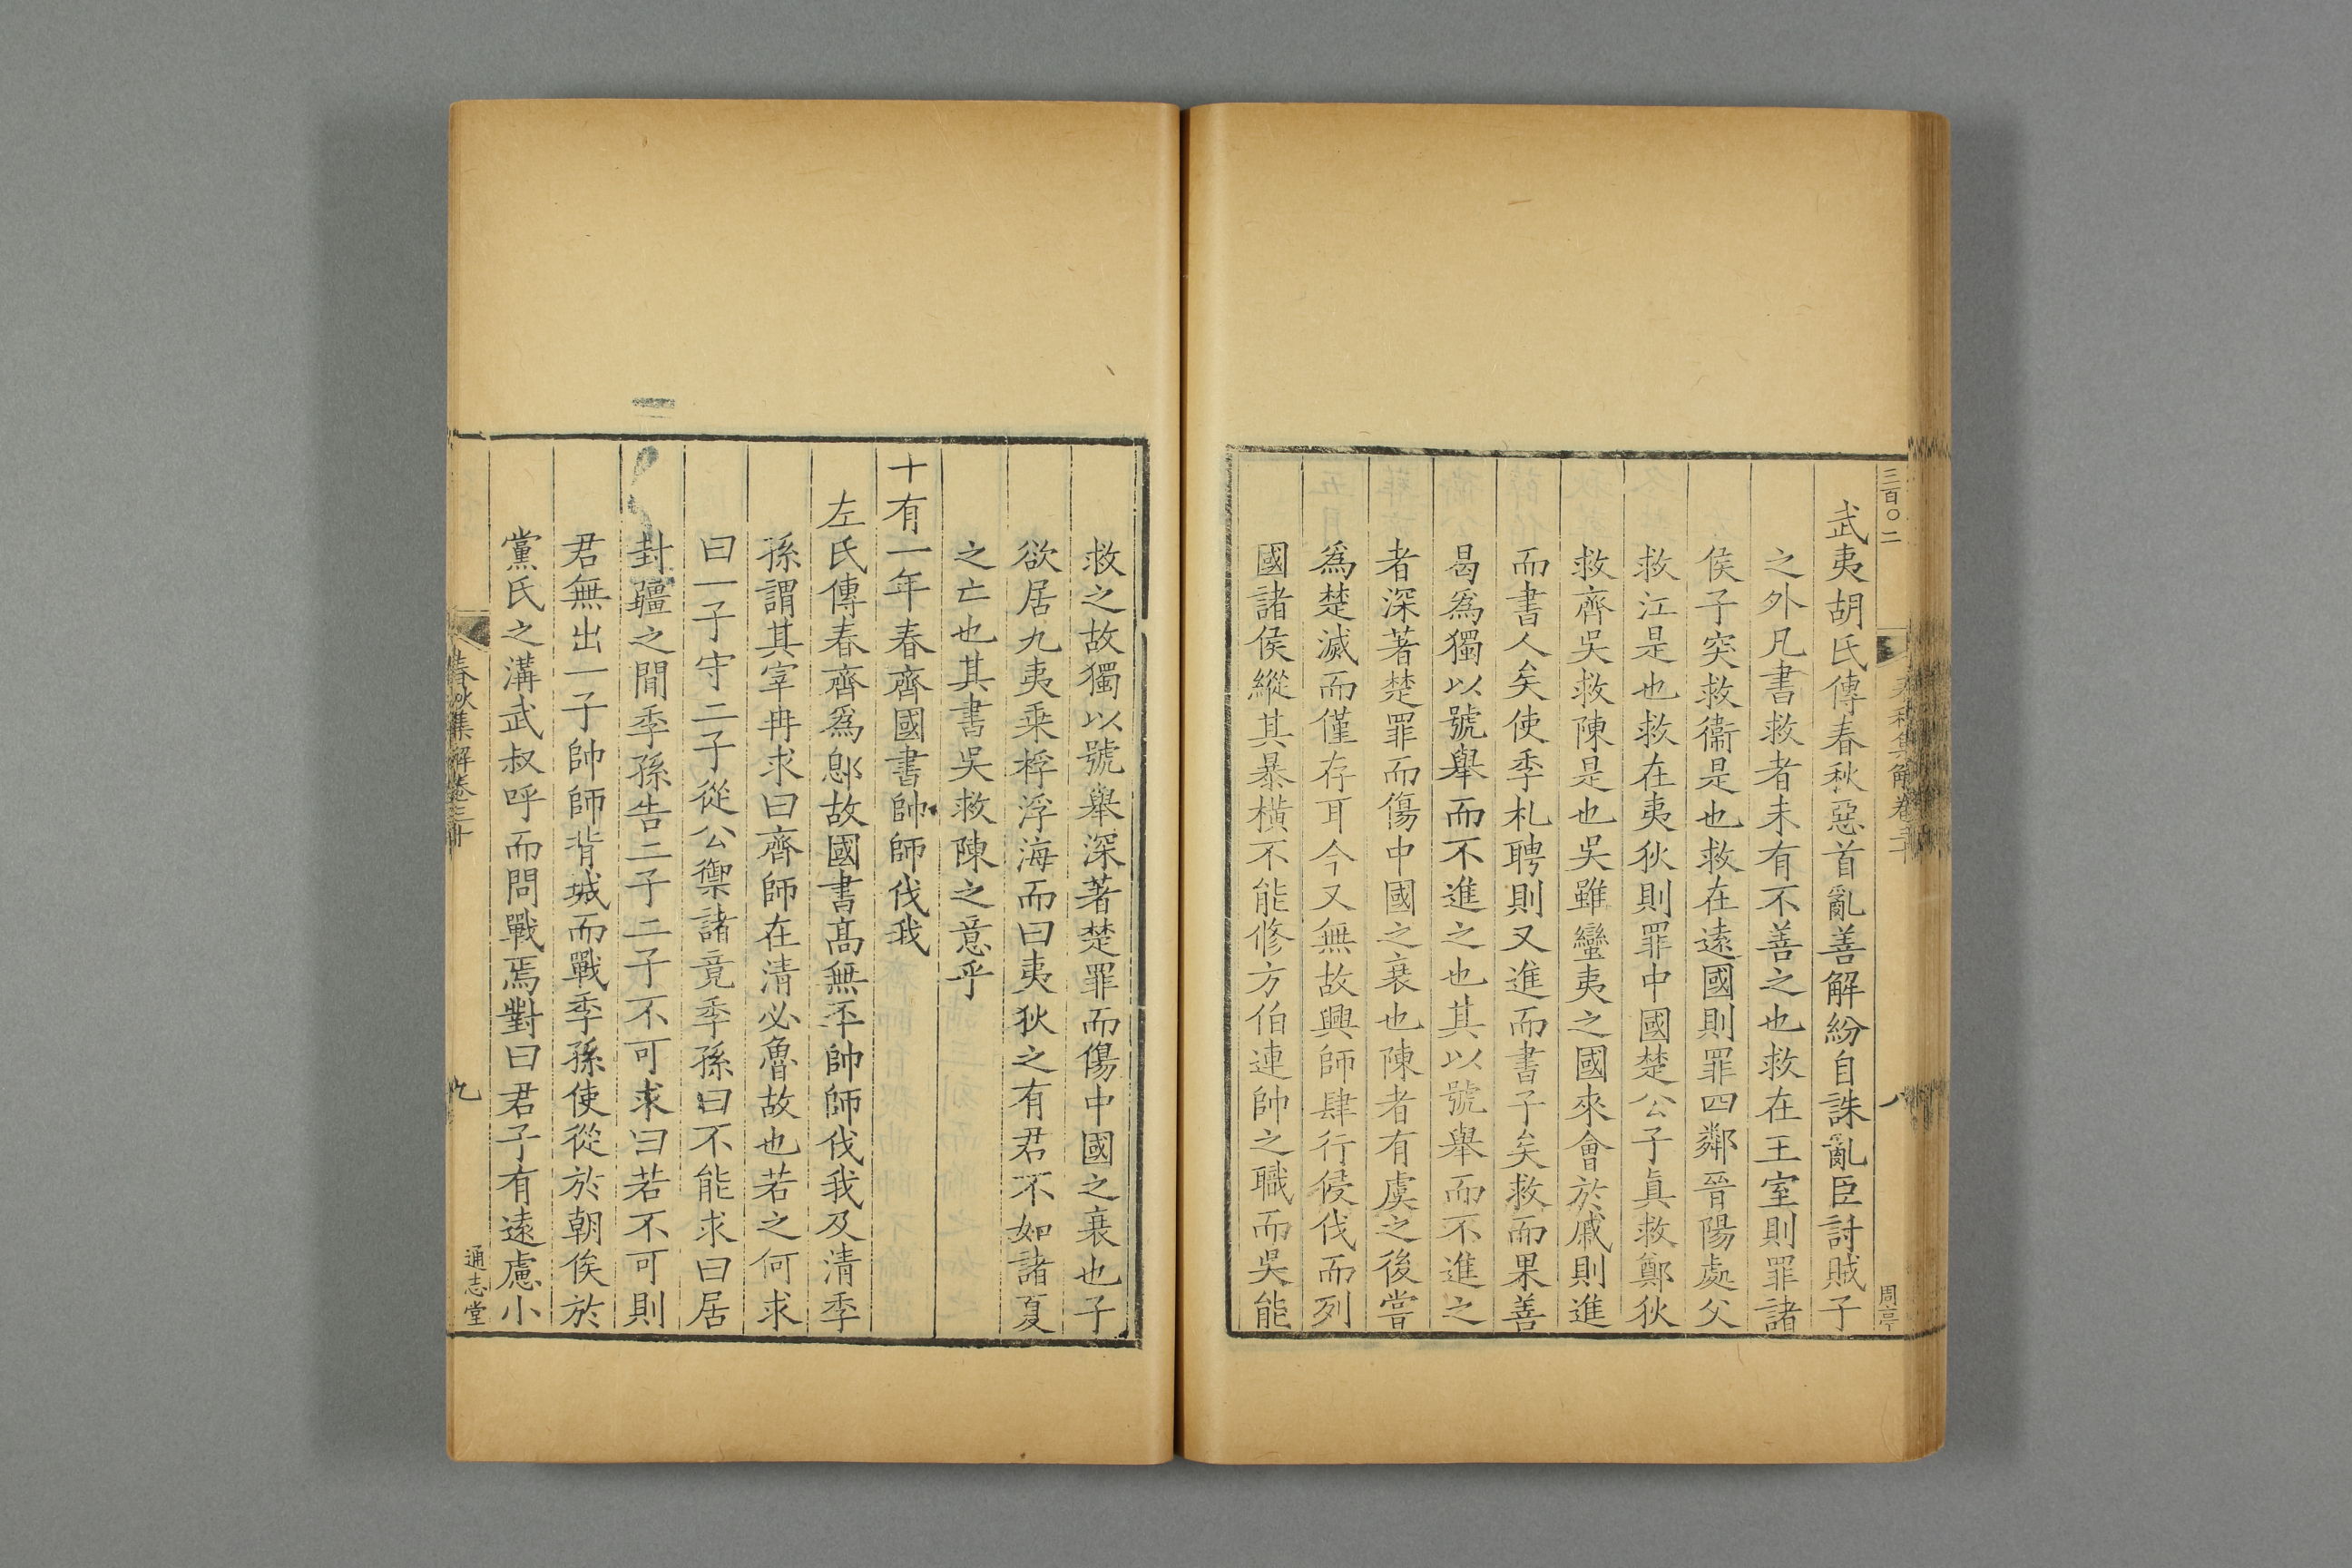 三百〇二
春秋集解卷三十
八
周亭
武夷胡氏傳春秋惡首亂善解紛自誅亂臣討賊子
之外凡書救者未有不善之也救在王室則罪諸
侯子突救衞是也救在遠國則罪四鄰晉陽處父
救江是也救在夷狄則罪中國楚公子貞救鄭狄
救齊吳救陳是也吳雖蠻夷之國來會於戚則進
而書人矣使季札聘則又進而書子矣救而果善
曷爲獨以號舉而不進之也其以號舉而不進之
者深著楚罪而傷中國之衰也陳者有虞之後嘗
爲楚滅而僅存耳今又無故興師肆行侵伐而列
國諸侯縱其暴橫不能修方伯連帥之職而吳能
救之故獨以號舉深著楚罪而傷中國之衰也子
欲居九夷乘桴浮海而曰夷狄之有君不如諸夏
之亡也其書吳救陳之意乎
十有一年春齊國書帥師伐我
左氏傳春齊爲鄎故國書高無㔻帥師伐我及清季
孫謂其宰冉求曰齊師在清必魯故也若之何求
曰一子守二子從公禦諸竟季孫曰不能求曰居
封疆之間季孫告二子二子不可求曰若不可則
君無出一子帥師背城而戰季孫使從於朝俟於
黨氏之溝武叔呼而問戰焉對曰君子有遠慮小
春秋集解卷三十
九
通志堂